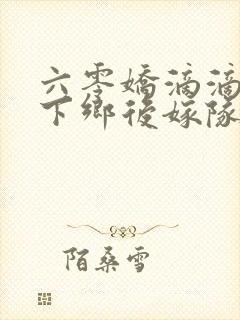 六零嬌滴滴
下鄉後嫁隊
陌桑雪